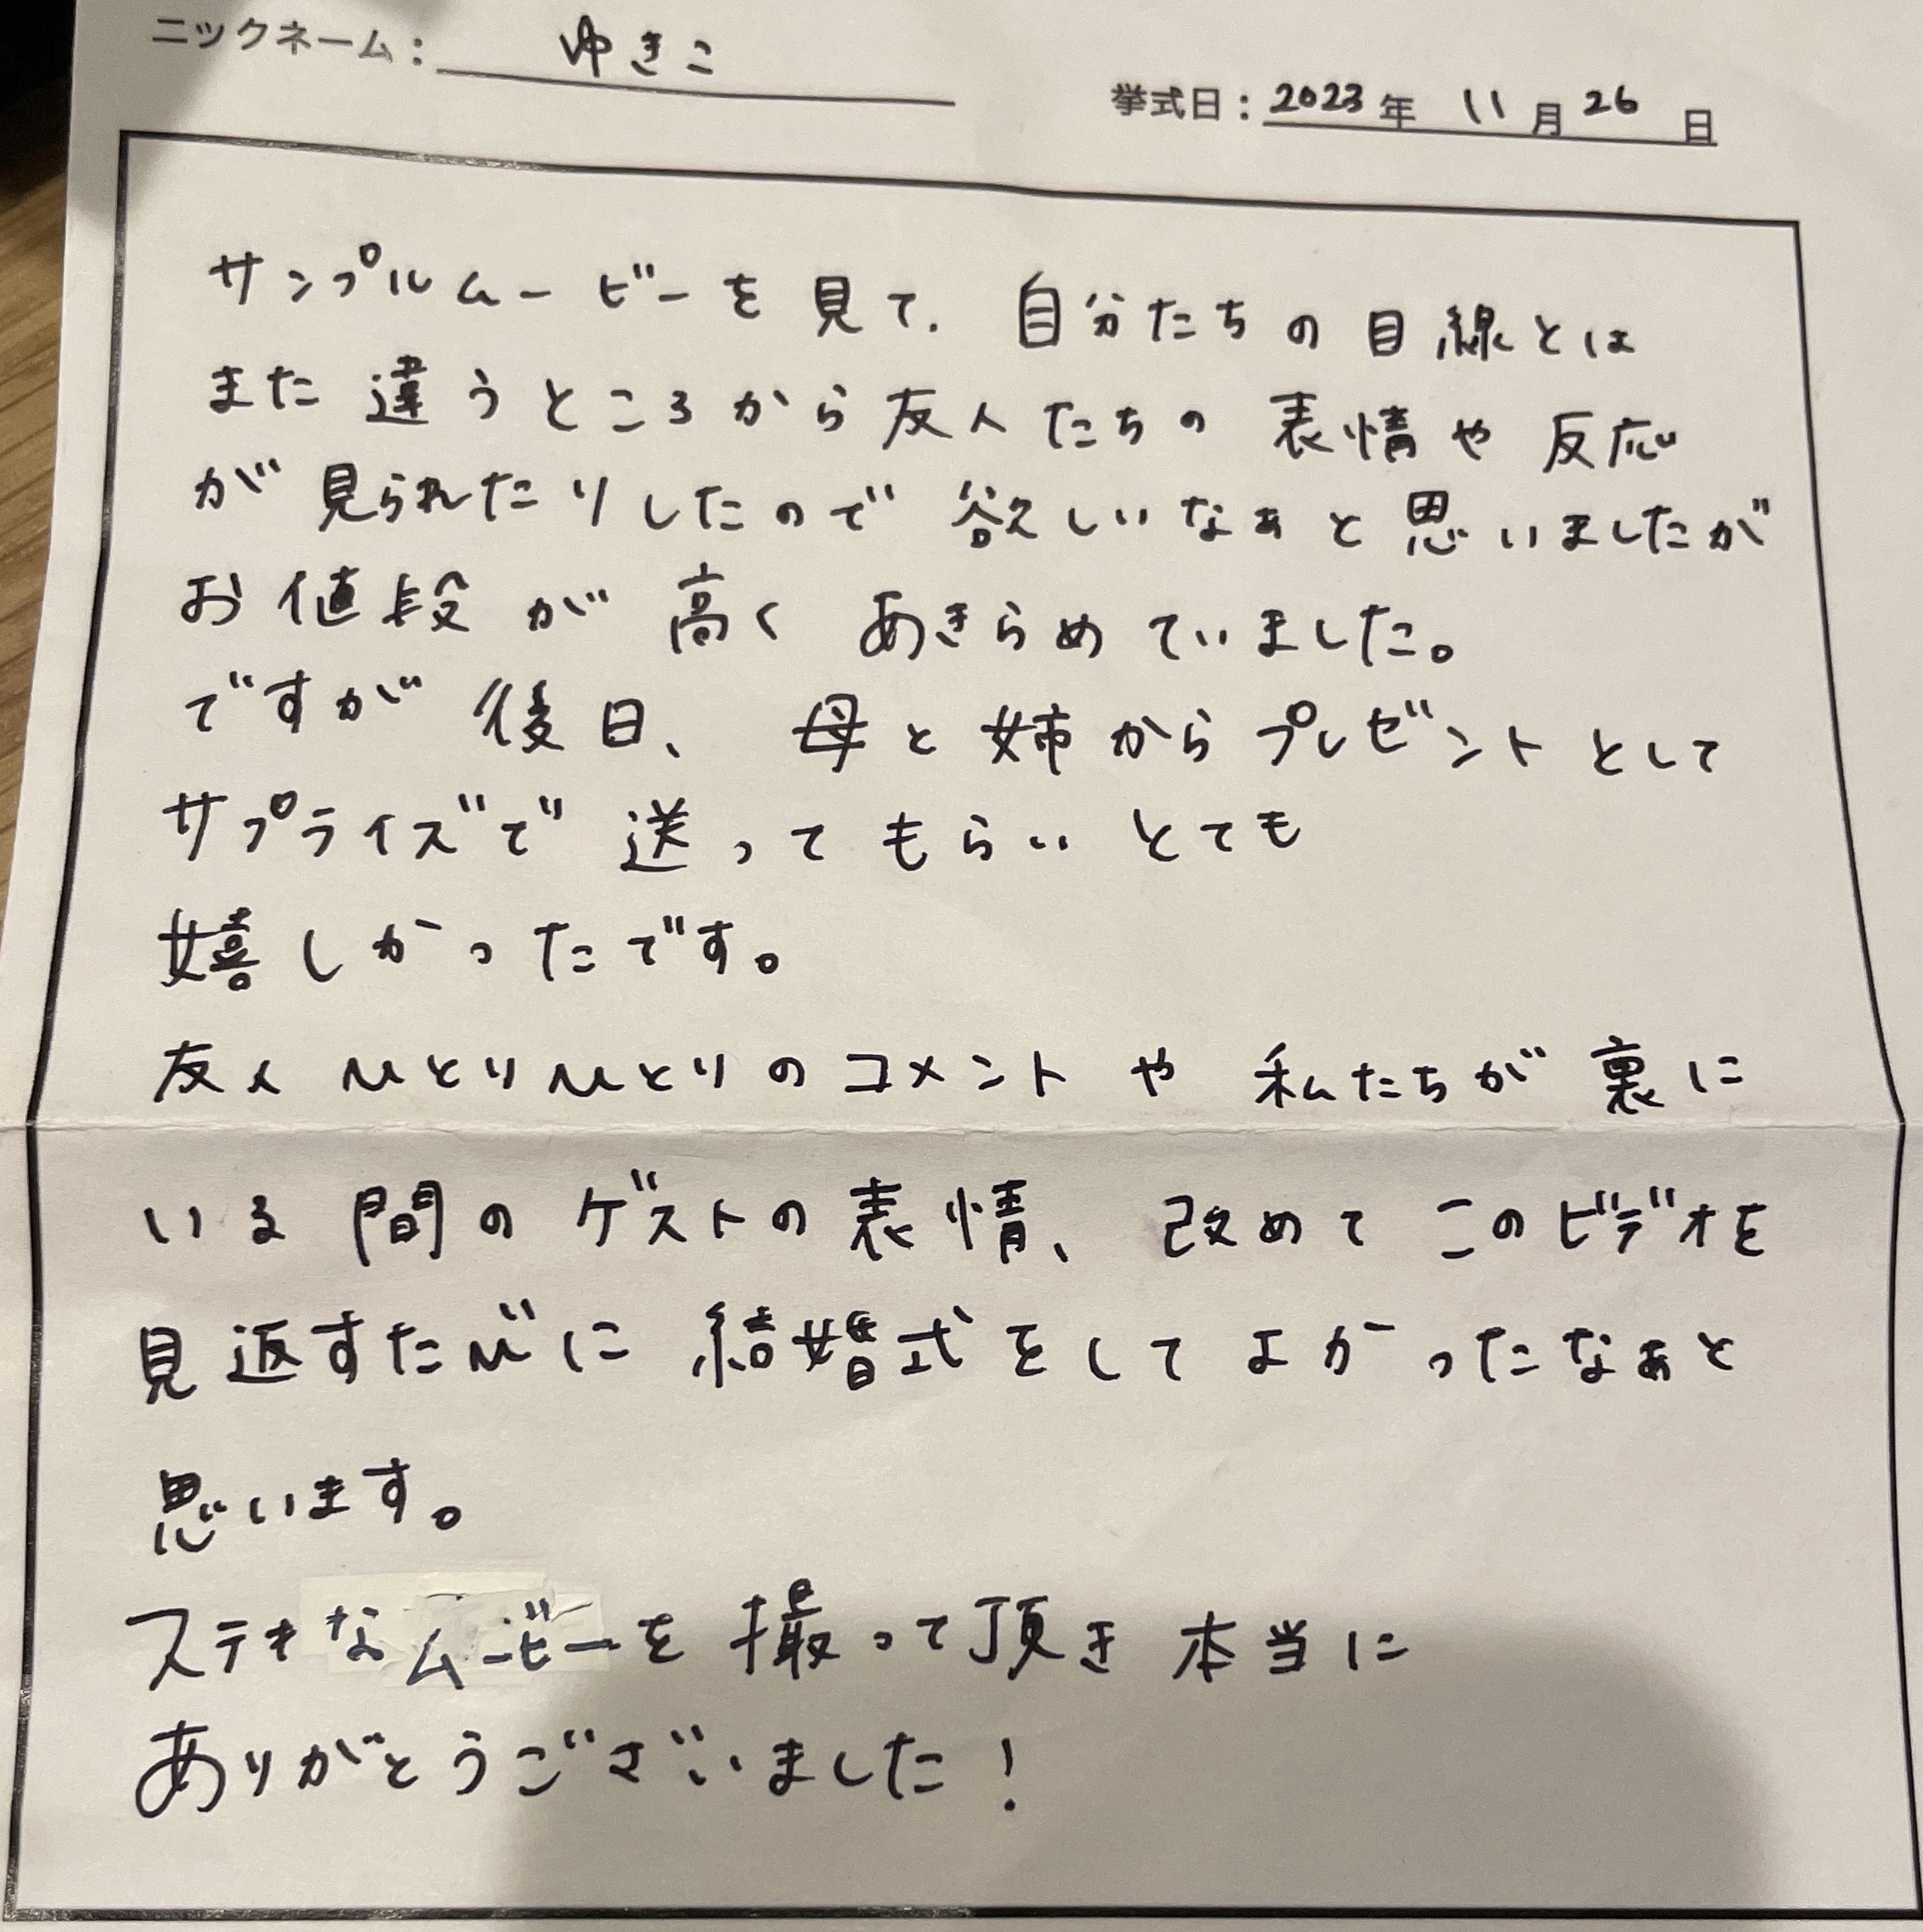 ニックネーム： ゆきこ
挙式日：2023年 11月26日
サンプルムービーを見て、自分たちの目線とは
また違うところから友人たちの表情や反応
が見られたりしたので欲しいなぁと思いましたが
お値段が高くあきらめていました。
ですが後日、母と姉からプレゼントとして
サプライズで送ってもらいとても
嬉しかったです。
友人ひとりひとりのコメントや私たちが裏に
いる間のゲストの表情、改めてこのビデオを
見返すたびに結婚式をしてよかったなぁと
思います。
ステキなムービーを撮って頂き本当に
ありがとうございました！